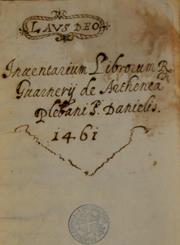 LAVS DEO
Inuentarium Librorum R
Guarnerij de Arthenea
Plebani S. Danielis.
1461